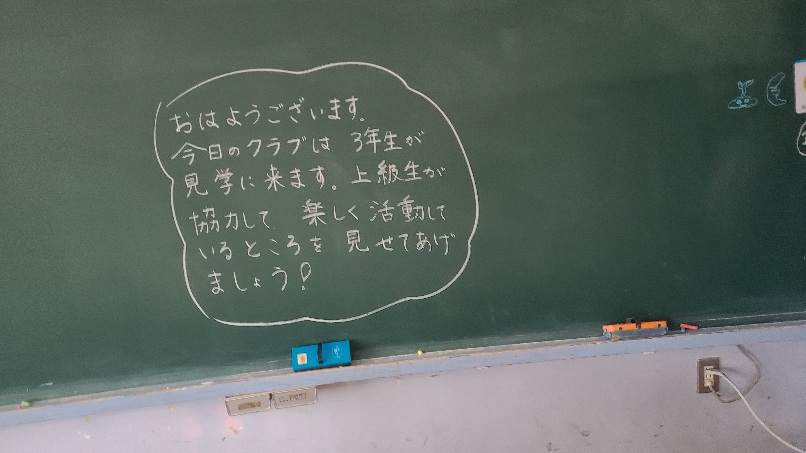 おはようございます。
今日のクラブは 3年生が
見学に来ます。上級生が
協力して 楽しく活動して
いるところを 見せてあげ
ましょう!